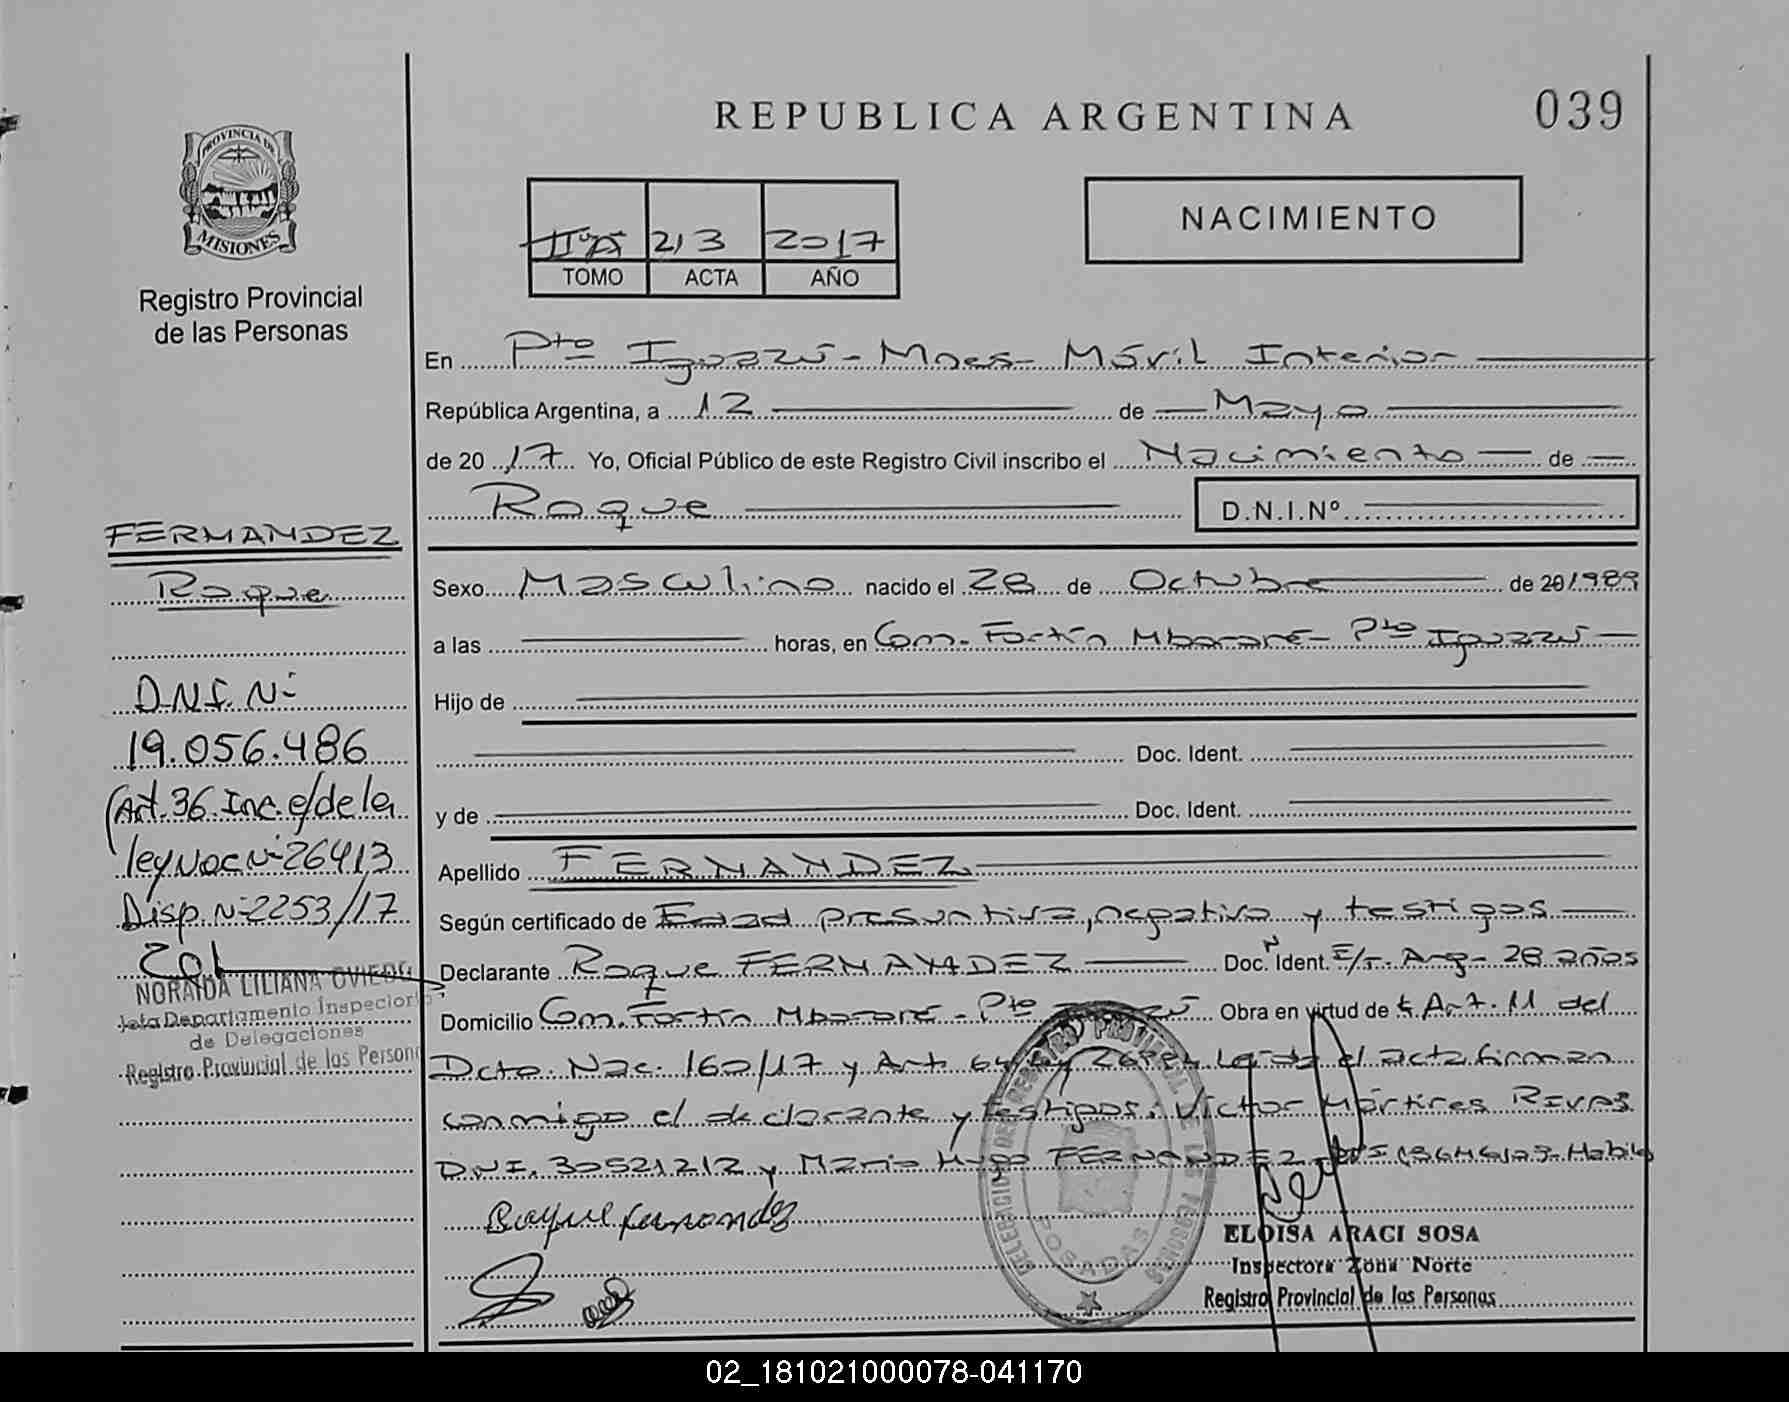 REPUBLICA ARGENTINA
039
PROVINCIA DE
MISIONES
Registro Provincial
de las Personas
213 2017
TOMO ACTA AÑO
NACIMIENTO
En Pto Iguazú - Mnes - Móvil Interior
República Argentina, a 12 de Mayo
de 2017 Yo, Oficial Público de este Registro Civil inscribo el Nacimiento de
Roque D.N.I.Nº
FERNANDEZ
Roque
D.N.I. Nº
19.056.486
(Art. 36. Inc. e/ de la
ley Nac Nº 26413
Disp. Nº 2253/17
NORAIDA LILIANA OVIEDO
Jefa Departamento Inspectoria
de Delegaciones
Registro Provincial de las Persona
Sexo Masculino nacido el 28 de Octubre de 20/1989
a las horas, en Com. Fortín Mbororé - Pto Iguazú
Hijo de
Doc. Ident.
y de Doc. Ident.
Apellido FERNANDEZ
Según certificado de Edad presuntiva, negativo y testigos
Declarante Roque FERNANDEZ Doc. Ident. E/T. Arg - 28 años
Domicilio Com. Fortín Mbororé - Pto Obra en virtud de Art. 11 del
Dcto. Nac. 160/17 y Art. Leída el acta firman
conmigo el declarante y testigos. Victor Mártires Rivas
D.N.I. 30521212 y Mario Hugo FERNANDEZ
Roque Fernandez
DELEGACION DEL REGISTRO PROVINCIAL DE LAS PERSONAS
POSADAS
ELOISA ARACI SOSA
Inspectora Zona Norte
Registro Provincial de las Personas
02_181021000078-041170